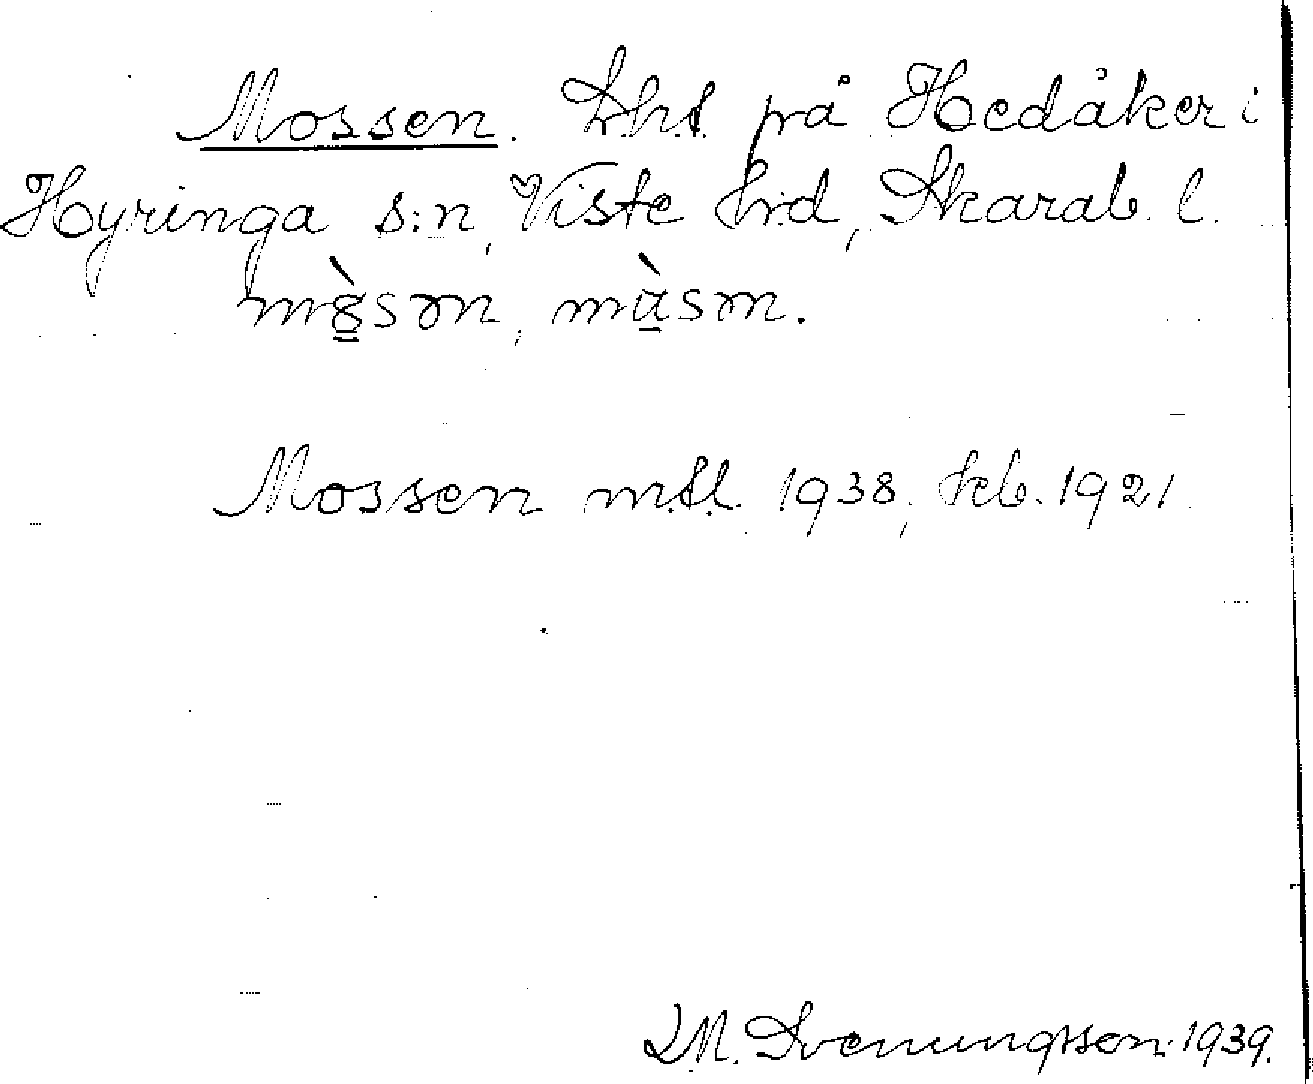 Mossen. Lht på Hedåker i
Hyringa s:n, Viste hrd, Skarab. l.
mòsən, mùsən.
Mossen mtl. 1938, kb. 1921
I M. Svenungsson 1939.